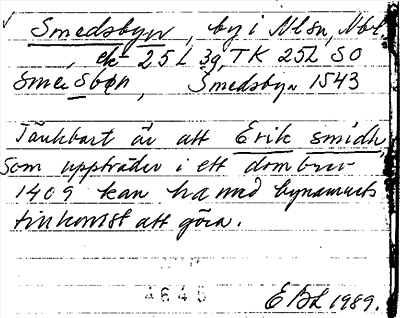 Smedsbyn, by i Nlsn, Nbt.
, ek 25L 3g, TK 25L SO
Smedsbyn 1543
Tänkbart är att Erik smidh,
som uppträder i ett dombrev
1409 kan ha med bynamnets
tillkomst att göra.
4645
EBL 1989.